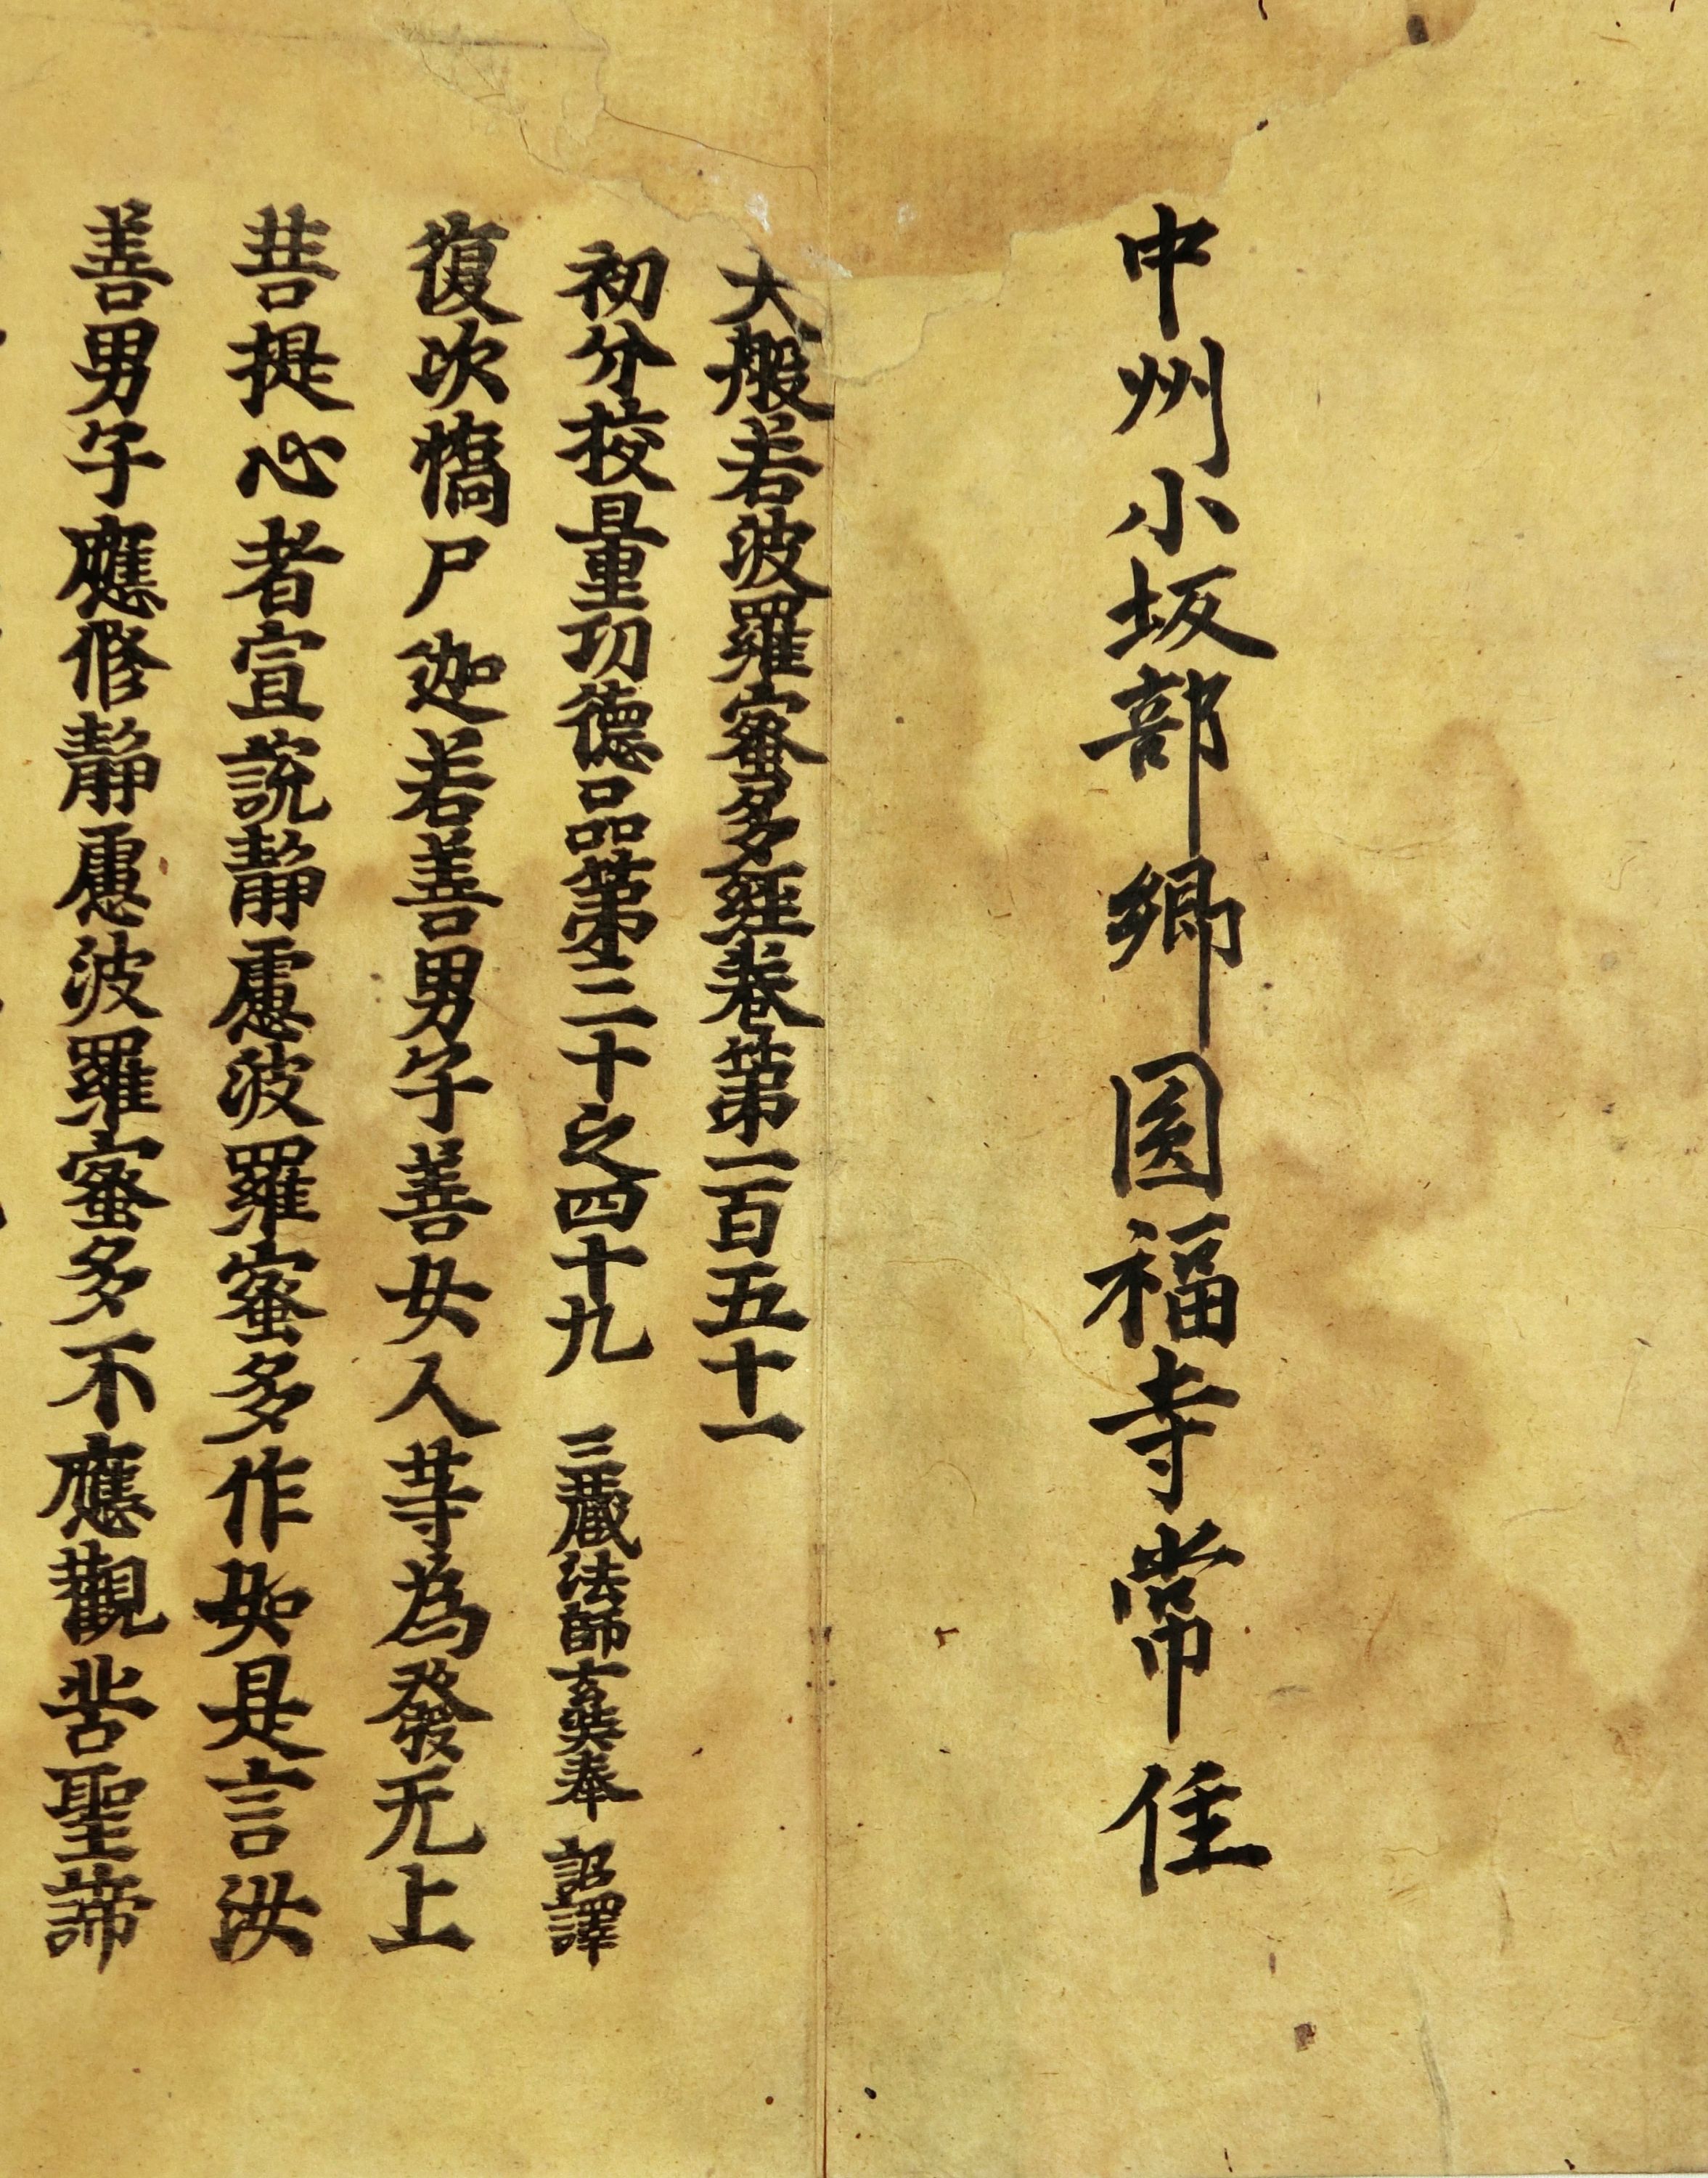 中州小坂部郷圓福寺常住
大般若波羅蜜多經卷第一百五十一
初分挍量功德品第三十之四十九 三藏法師玄奘奉 詔譯
復次憍尸迦若善男子善女人等為發无上
菩提心者宣說靜慮波羅蜜多作如是言汝
善男子應修靜慮波羅蜜多不應觀苦聖諦